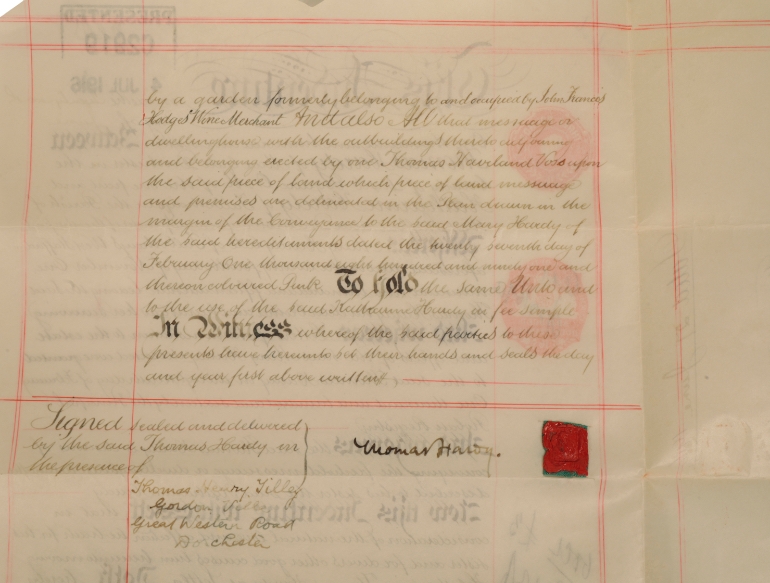 by a garden formerly belonging to and occupied by John Francis
Hodges Wine Merchant And also All that messuage or
dwellinghouse with the outbuildings thereto adjoining
and belonging erected by one Thomas Haviland Voss upon
the said piece of land which piece of land messuage
and premises are delineated in the Plan drawn in the
margin of the Conveyance to the said Mary Hardy of
the said hereditaments dated the twenty seventh day of
February One thousand eight hundred and ninety one and
thereon coloured Pink To hold the same Unto and
to the use of the said Katharine Hardy in fee simple
In Witness whereof the said parties to these
presents have hereunto set their hands and seals the day
and year first above written
Signed sealed and delivered
by the said Thomas Hardy in
the presence of
Thomas Hardy.
Thomas Henry Tilley
Gordon Villa
Great Western Road
Dorchester
PRESENTED
4 JUL 1916
This Indenture
Between
Now this Indenture